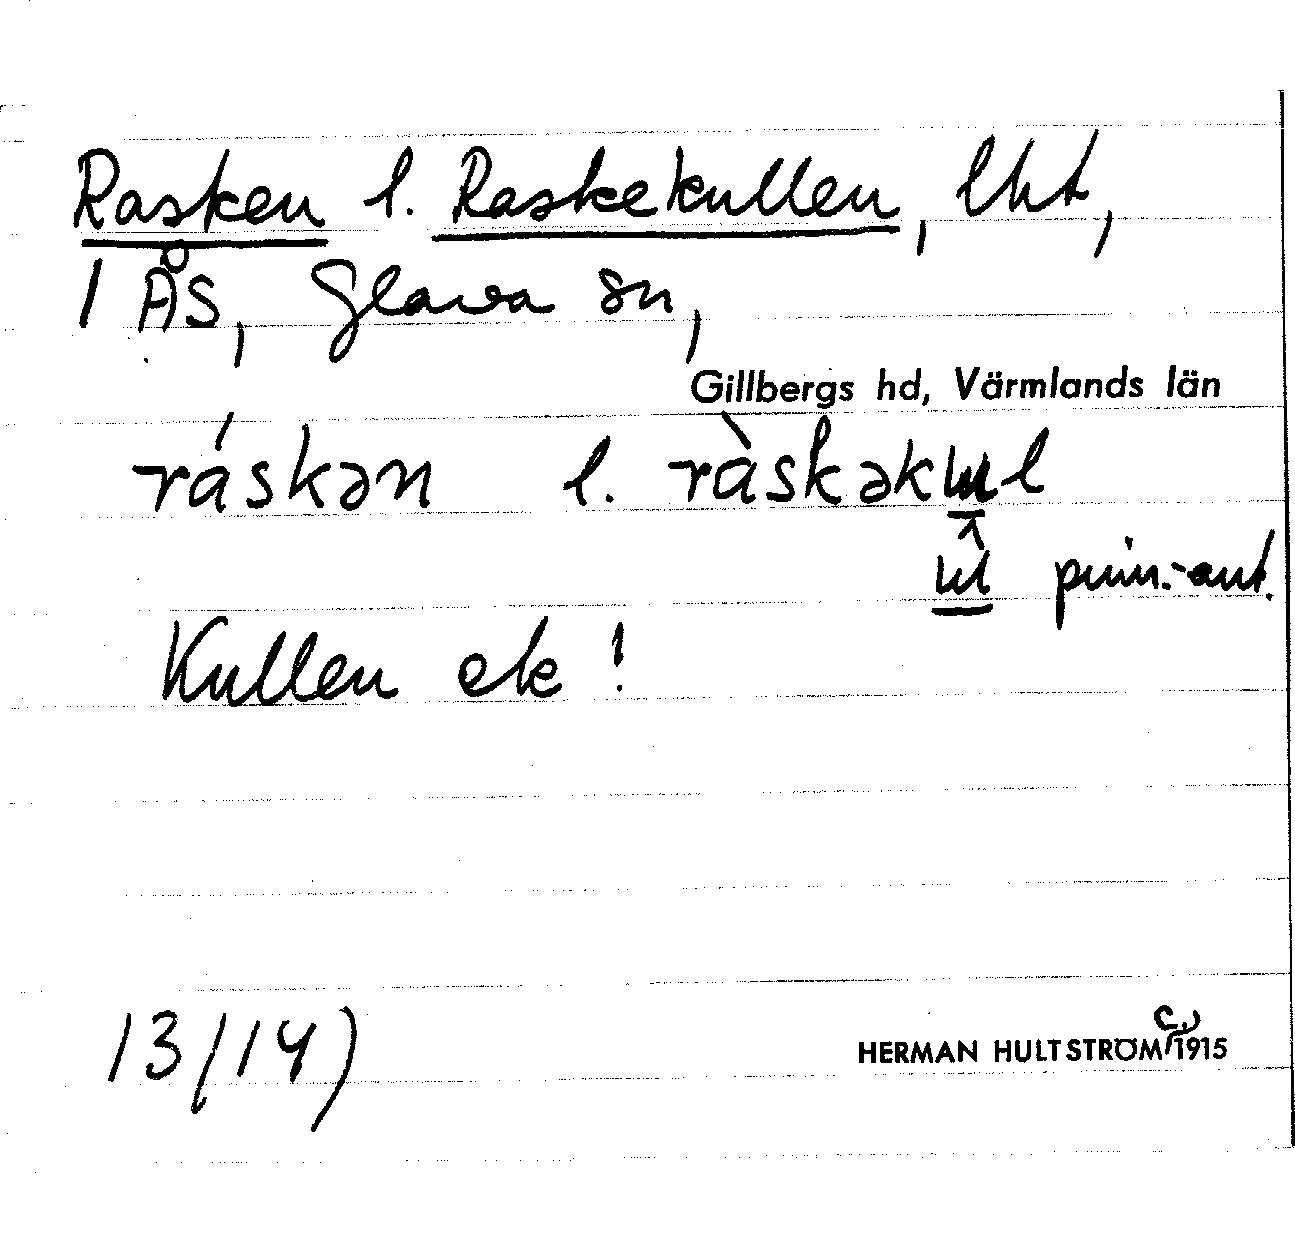 Rasken l. Raskekullen, lht,
I ÅS, Glava sn,
Gillbergs hd, Värmlands län
ráskən l. ràskəkɯl
prim.-ant.
Kullen ek!
13/14)
HERMAN HULTSTRÖM c. 1915